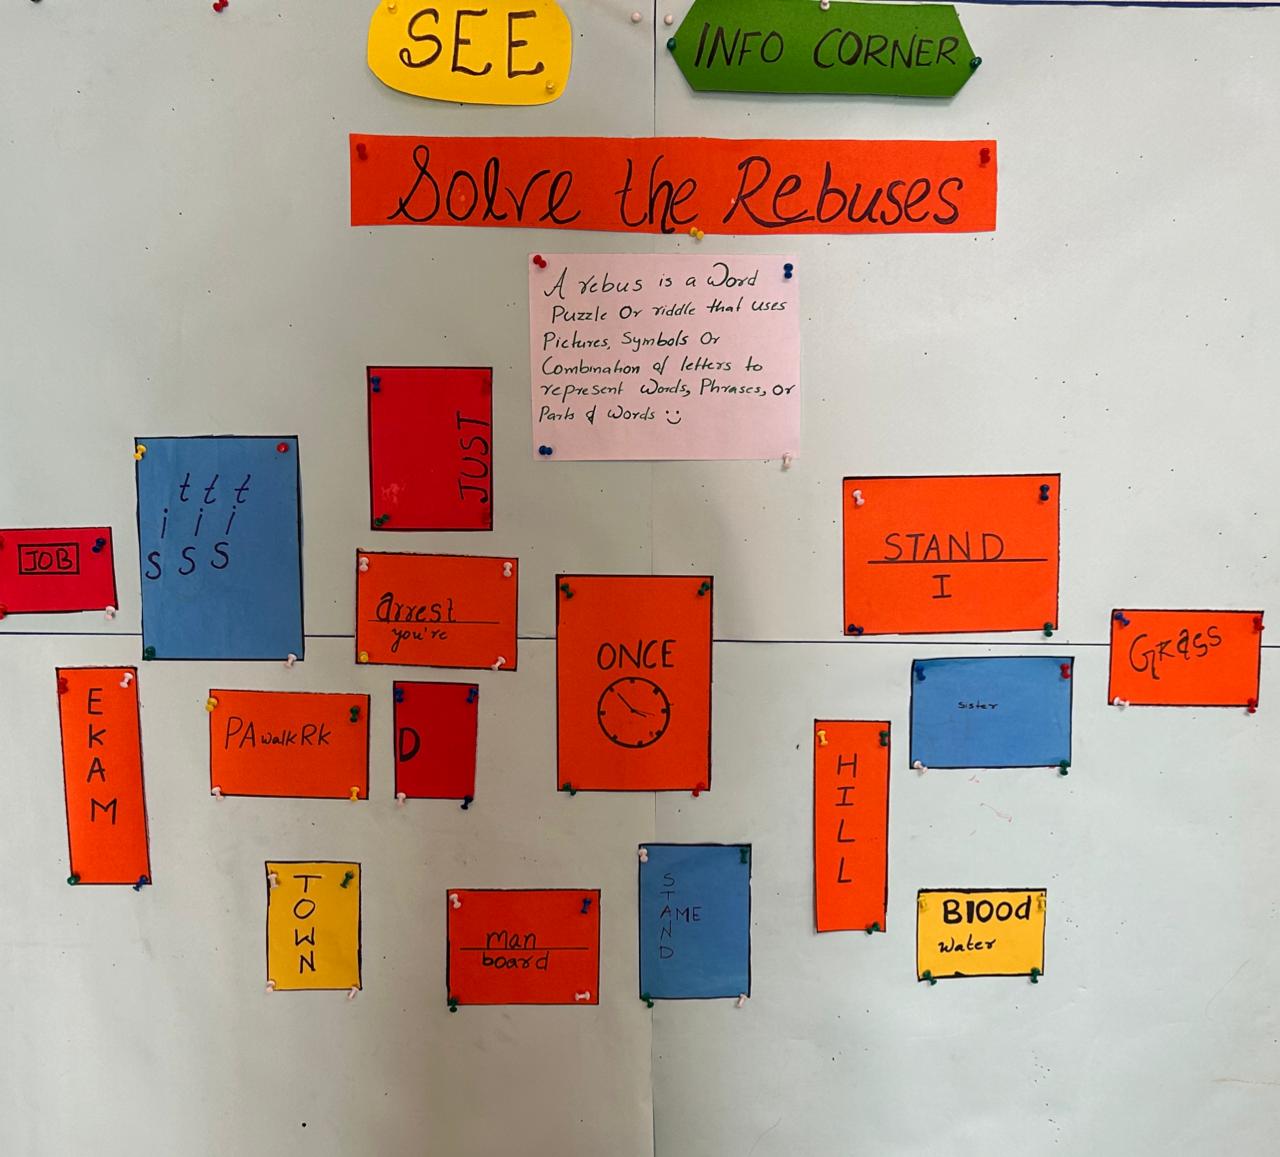 SEE
INFO CORNER
Solve the Rebuses
A rebus is a Word
Puzzle Or riddle that uses
Pictures, Symbols Or
Combination of letters to
represent Words, Phrases, Or
Parts of Words
JUST
t t t
i i i
S S S
JOB
arrest
you're
ONCE
STAND
I
Grass
E
K
A
M
PA walk RK
D
sister
H
I
L
L
T
O
W
N
man
board
S
T
AME
N
D
Blood
Water